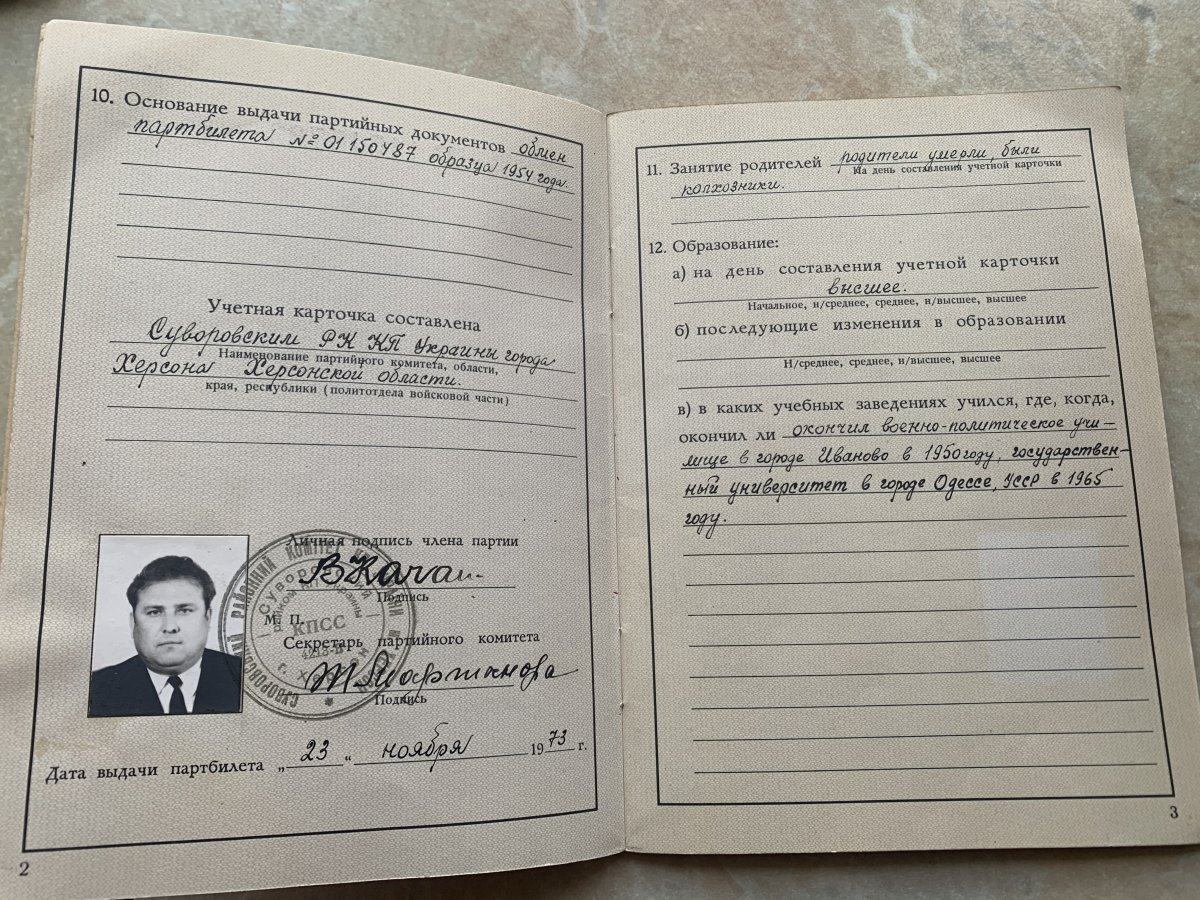 10. Основание выдачи партийных документов обмен
партбилета № 01150487 образца 1954 года.
Учетная карточка составлена
Суворовским РК КП Украины города
Наименование партийного комитета, области,
Херсона Херсонской области.
края, республики (политотдела войсковой части)
Личная подпись члена партии
Подпись
М. П.
КПСС
Секретарь партийного комитета
Подпись
Дата выдачи партбилета „ 23 “ ноября 1973 г.
2
11. Занятие родителей родители умерли, были
На день составления учетной карточки
колхозники.
12. Образование:
а) на день составления учетной карточки
высшее.
Начальное, н/среднее, среднее, н/высшее, высшее
б) последующие изменения в образовании
Н/среднее, среднее, н/высшее, высшее
в) в каких учебных заведениях учился, где, когда,
окончил ли окончил военно-политическое учи-
лище в городе Иваново в 1950 году, государствен-
ный университет в городе Одессе, УССР в 1965
году.
3